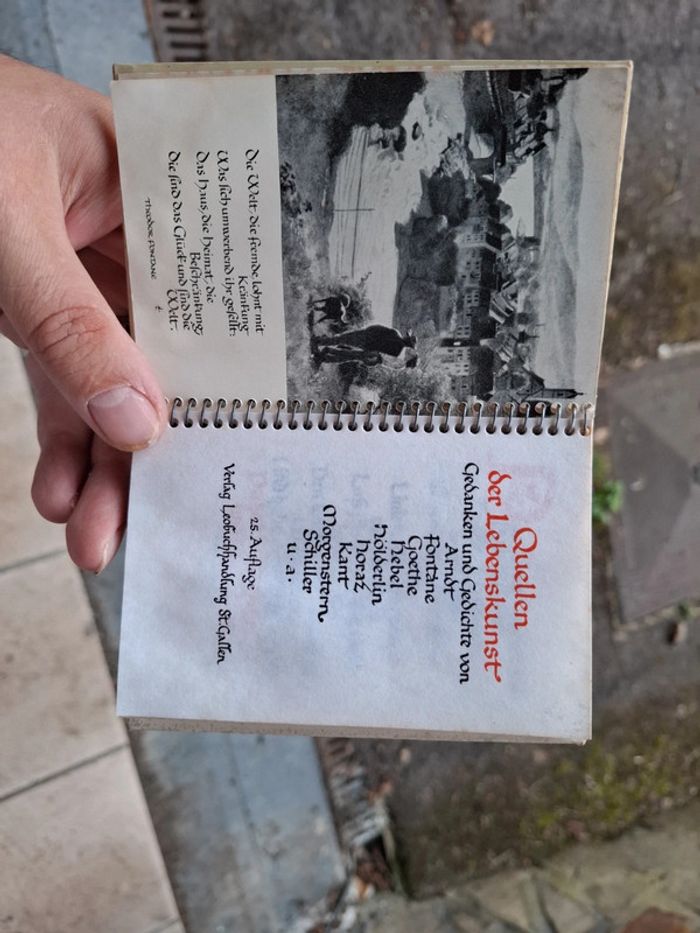 Die Welt, die fremde, lohnt mit
Kränkung,
Was sich umwerbend ihr gesellt:
Das Haus, die Heimat, die
Beschränkung,
Die sind das Glück und sind die
Welt.
Theodor Fontane
Quellen
der Lebenskunst
Gedanken und Gedichte von
Arndt
Fontane
Hebel
Goethe
Hölderlin
Horaz
Kant
Morgenstern
Schiller
u. a.
25. Auflage
Verlag Leobuchhandlung St. Gallen